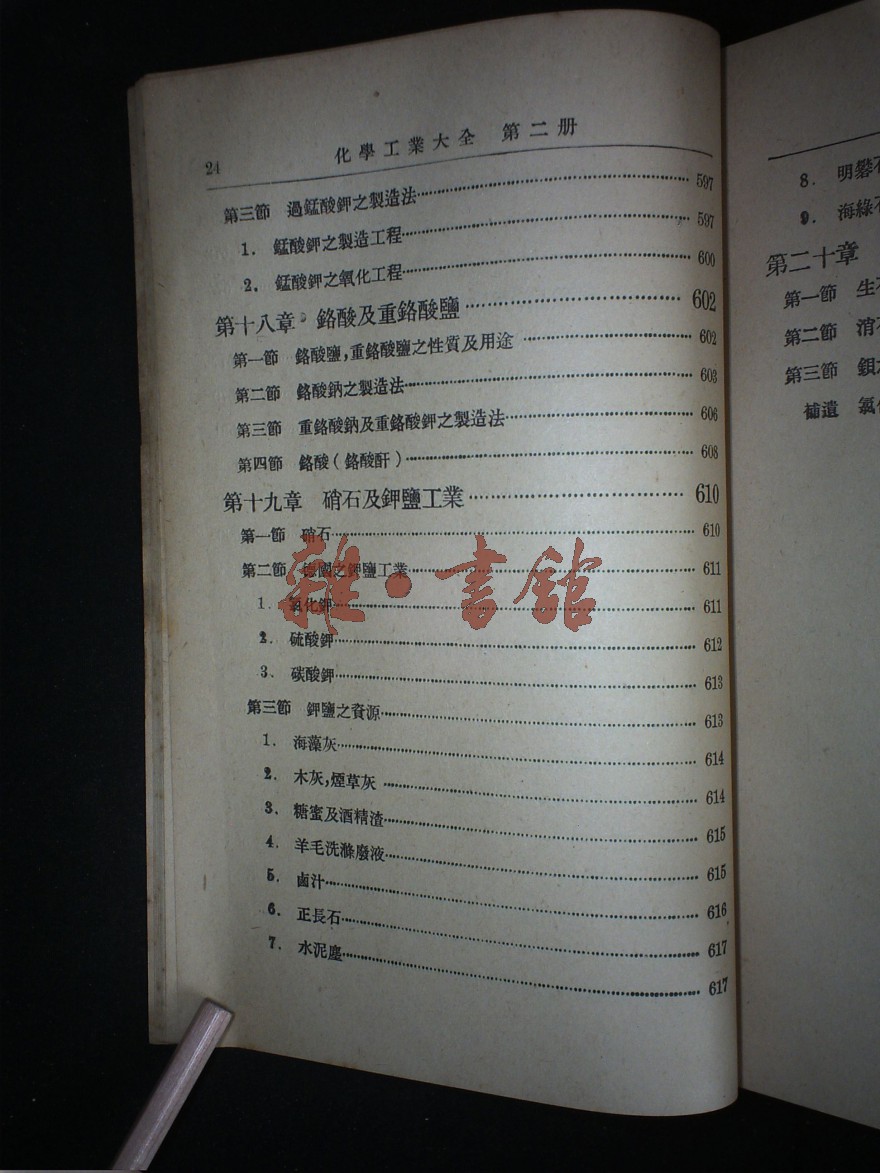 24 化學工業大全 第二册
第三節 過錳酸鉀之製造法 597
1. 錳酸鉀之製造工程 597
2. 錳酸鉀之氧化工程 600
第十八章 鉻酸及重鉻酸鹽 602
第一節 鉻酸鹽,重鉻酸鹽之性質及用途 602
第二節 鉻酸鈉之製造法 603
第三節 重鉻酸鈉及重鉻酸鉀之製造法 606
第四節 鉻酸(鉻酸酐) 608
第十九章 硝石及鉀鹽工業 610
第一節 硝石 610
第二節 德國之鉀鹽工業 611
1. 氯化鉀 611
2. 硫酸鉀 612
3. 碳酸鉀 613
第三節 鉀鹽之資源 613
1. 海藻灰 614
2. 木灰,煙草灰 614
3. 糖蜜及酒精渣 615
4. 羊毛洗滌廢液 615
5. 鹵汁 616
6. 正長石 617
7. 水泥塵 617
雜·書館
8. 明礬石
9. 海綠石
第二十章
第一節 生石
第二節 消石
第三節 鋇
補遺 氯化